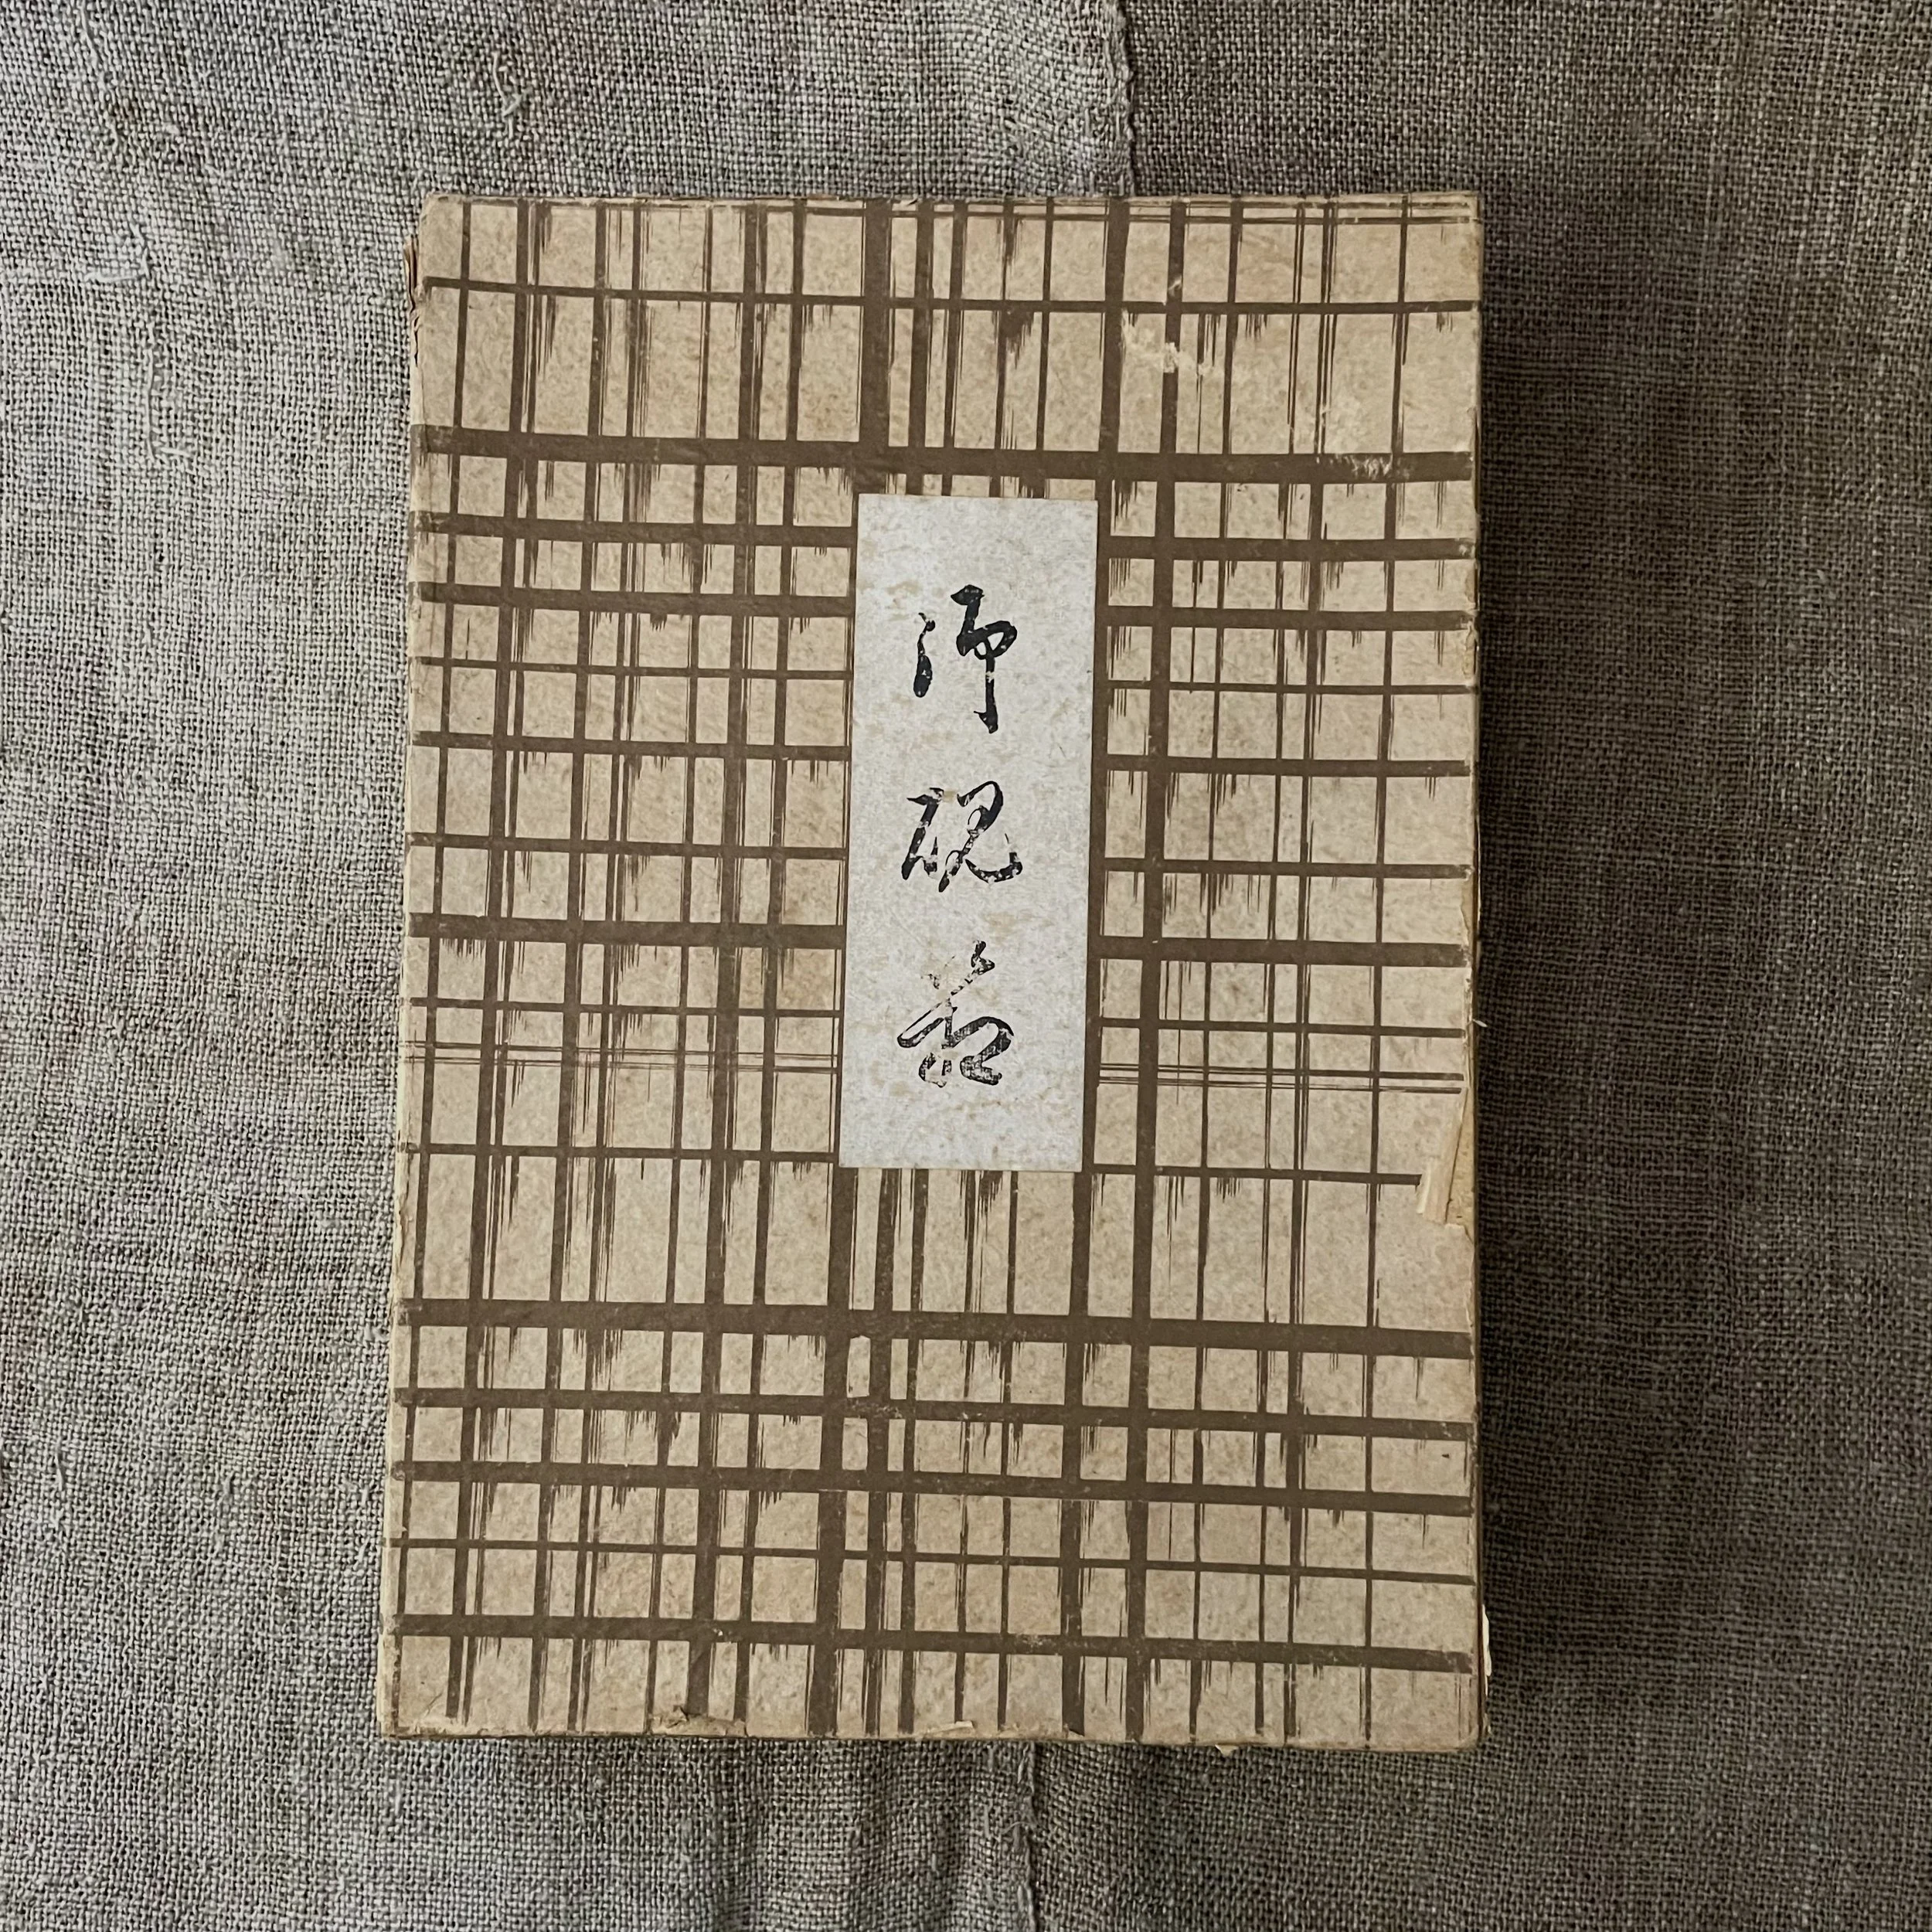 御硯箱